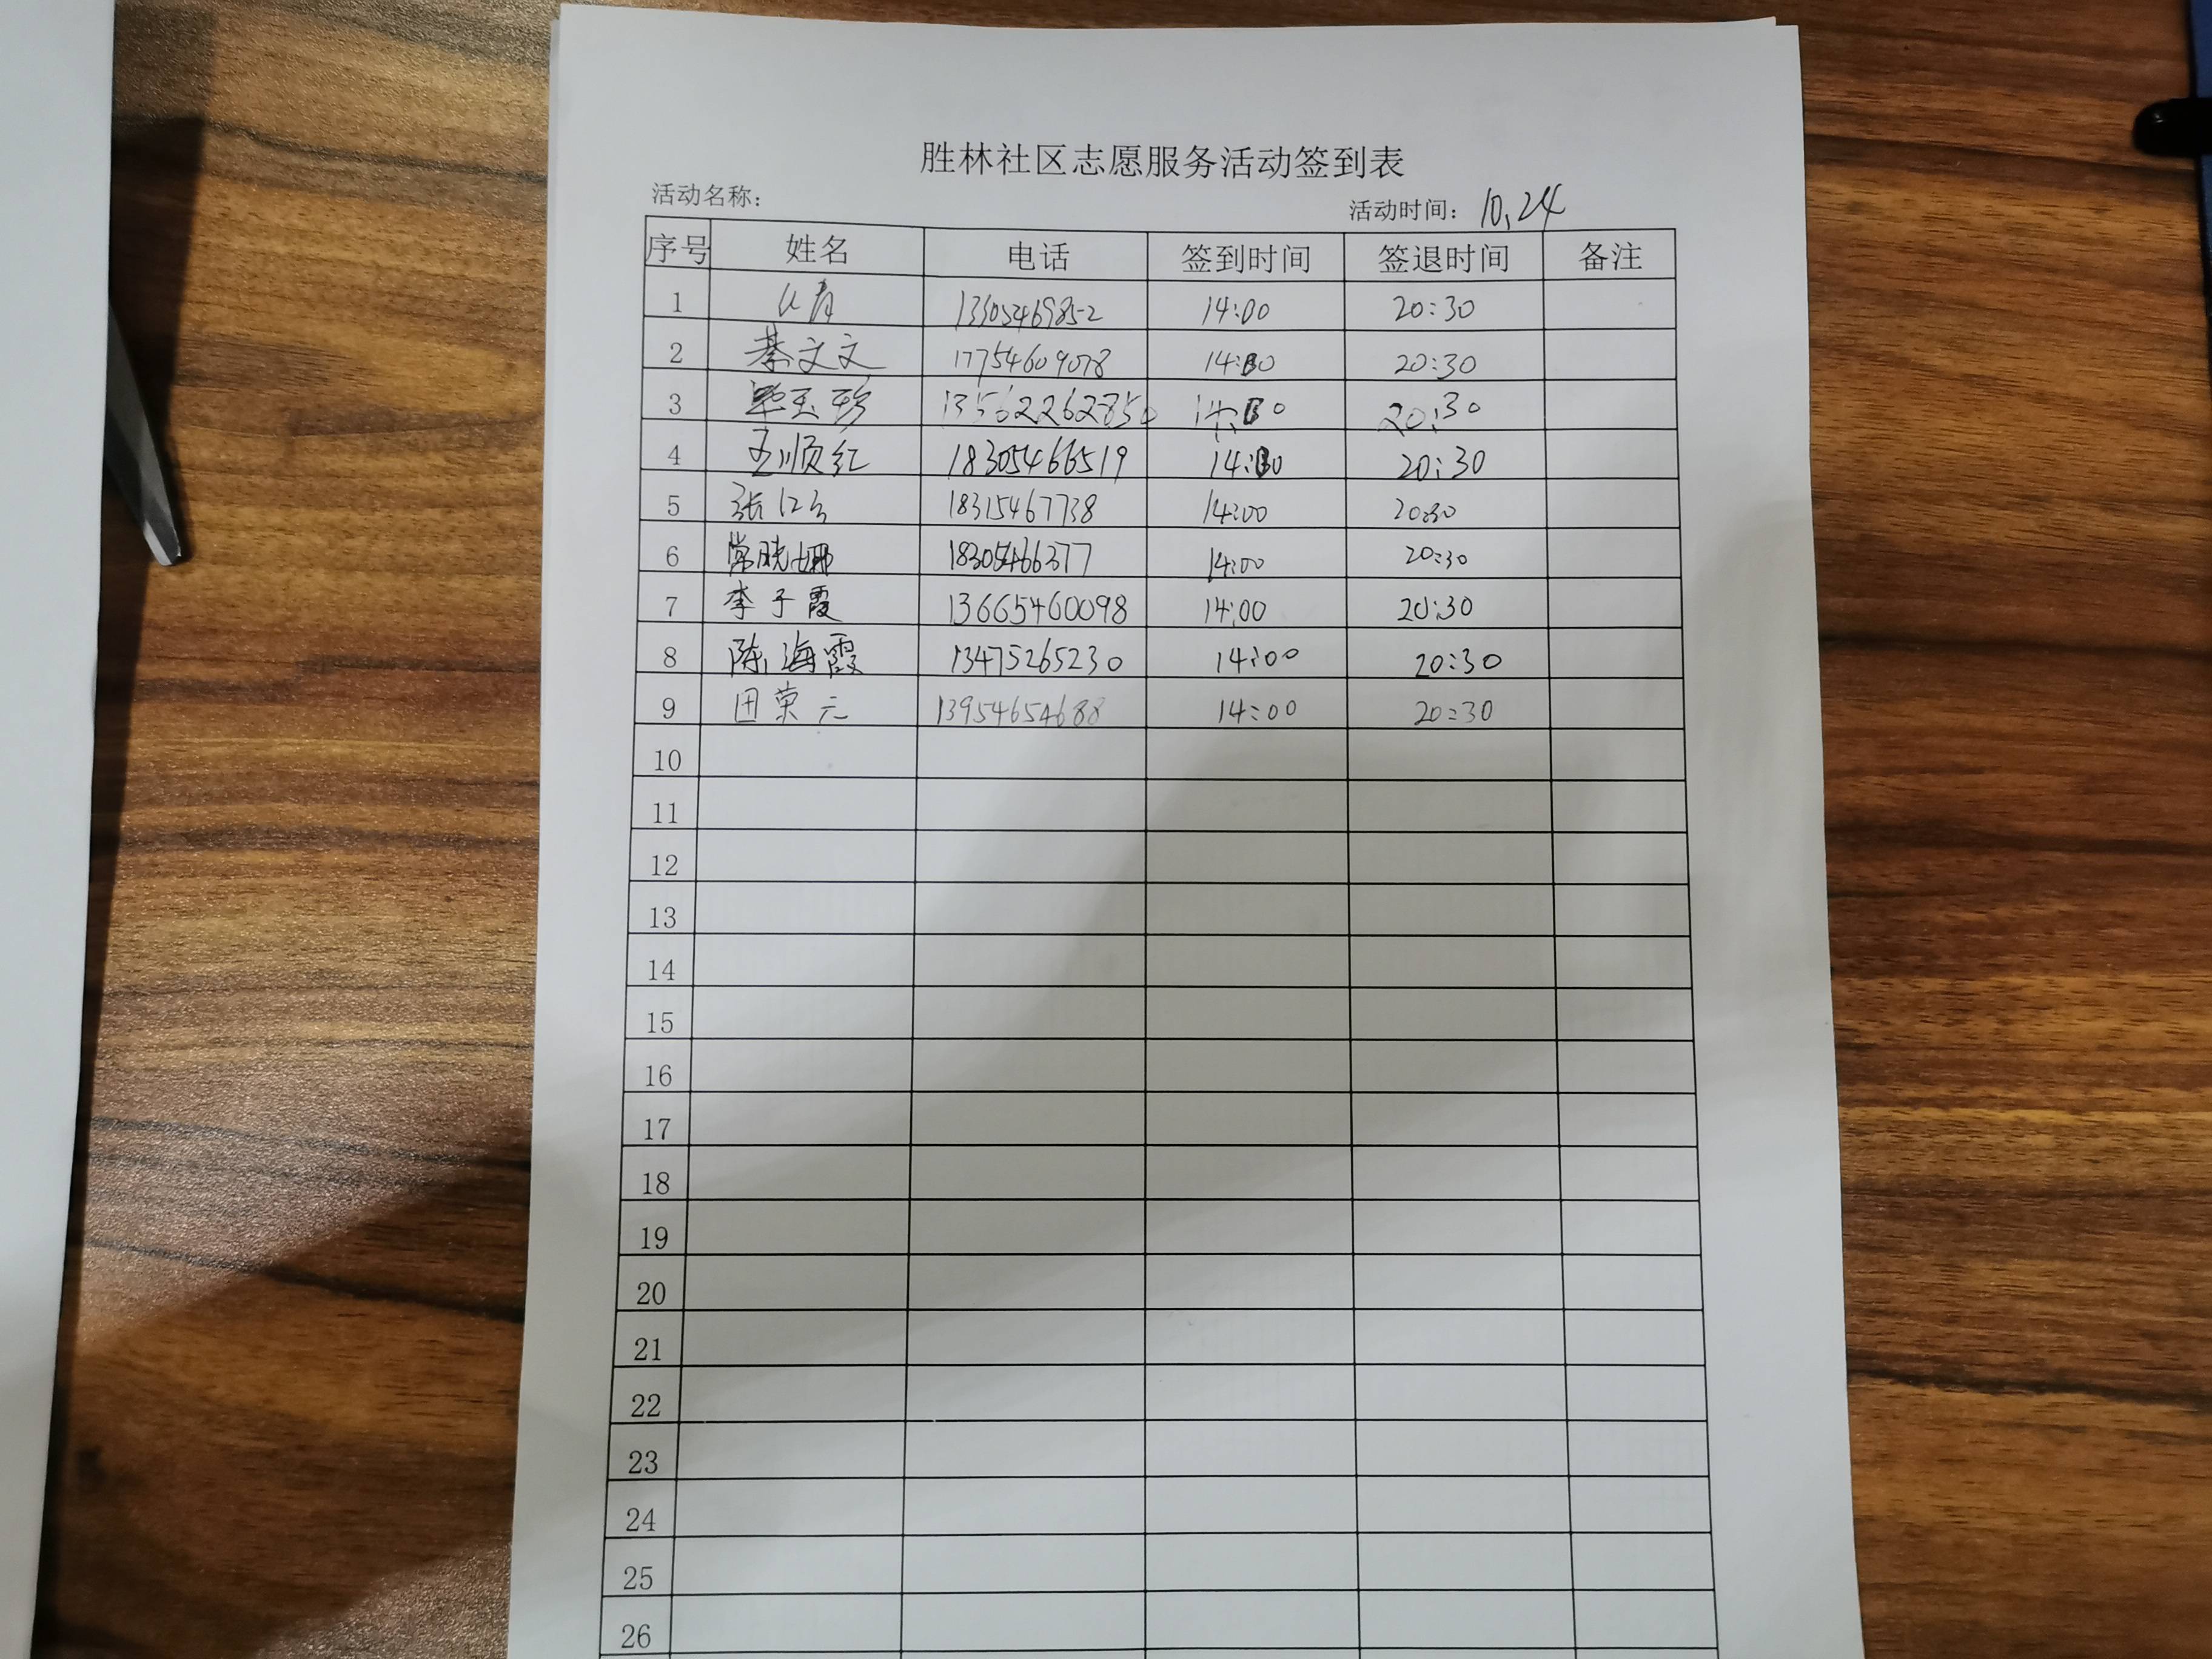 胜林社区志愿服务活动签到表
活动名称： 活动时间：10.24
序号 姓名 电话 签到时间 签退时间 备注
1 14:00 20:30
2 綦文文 17754609078 14:00 20:30
3 毕玉珍 13562262850 14:00 20:30
4 王顺红 18305466519 14:00 20:30
5 张红云 18315467738 14:00 20:30
6 常晓娜 18305466377 14:00 20:30
7 李子霞 13665460098 14:00 20:30
8 陈海霞 13475265230 14:00 20:30
9 田荣元 13954654688 14:00 20:30
10
11
12
13
14
15
16
17
18
19
20
21
22
23
24
25
26